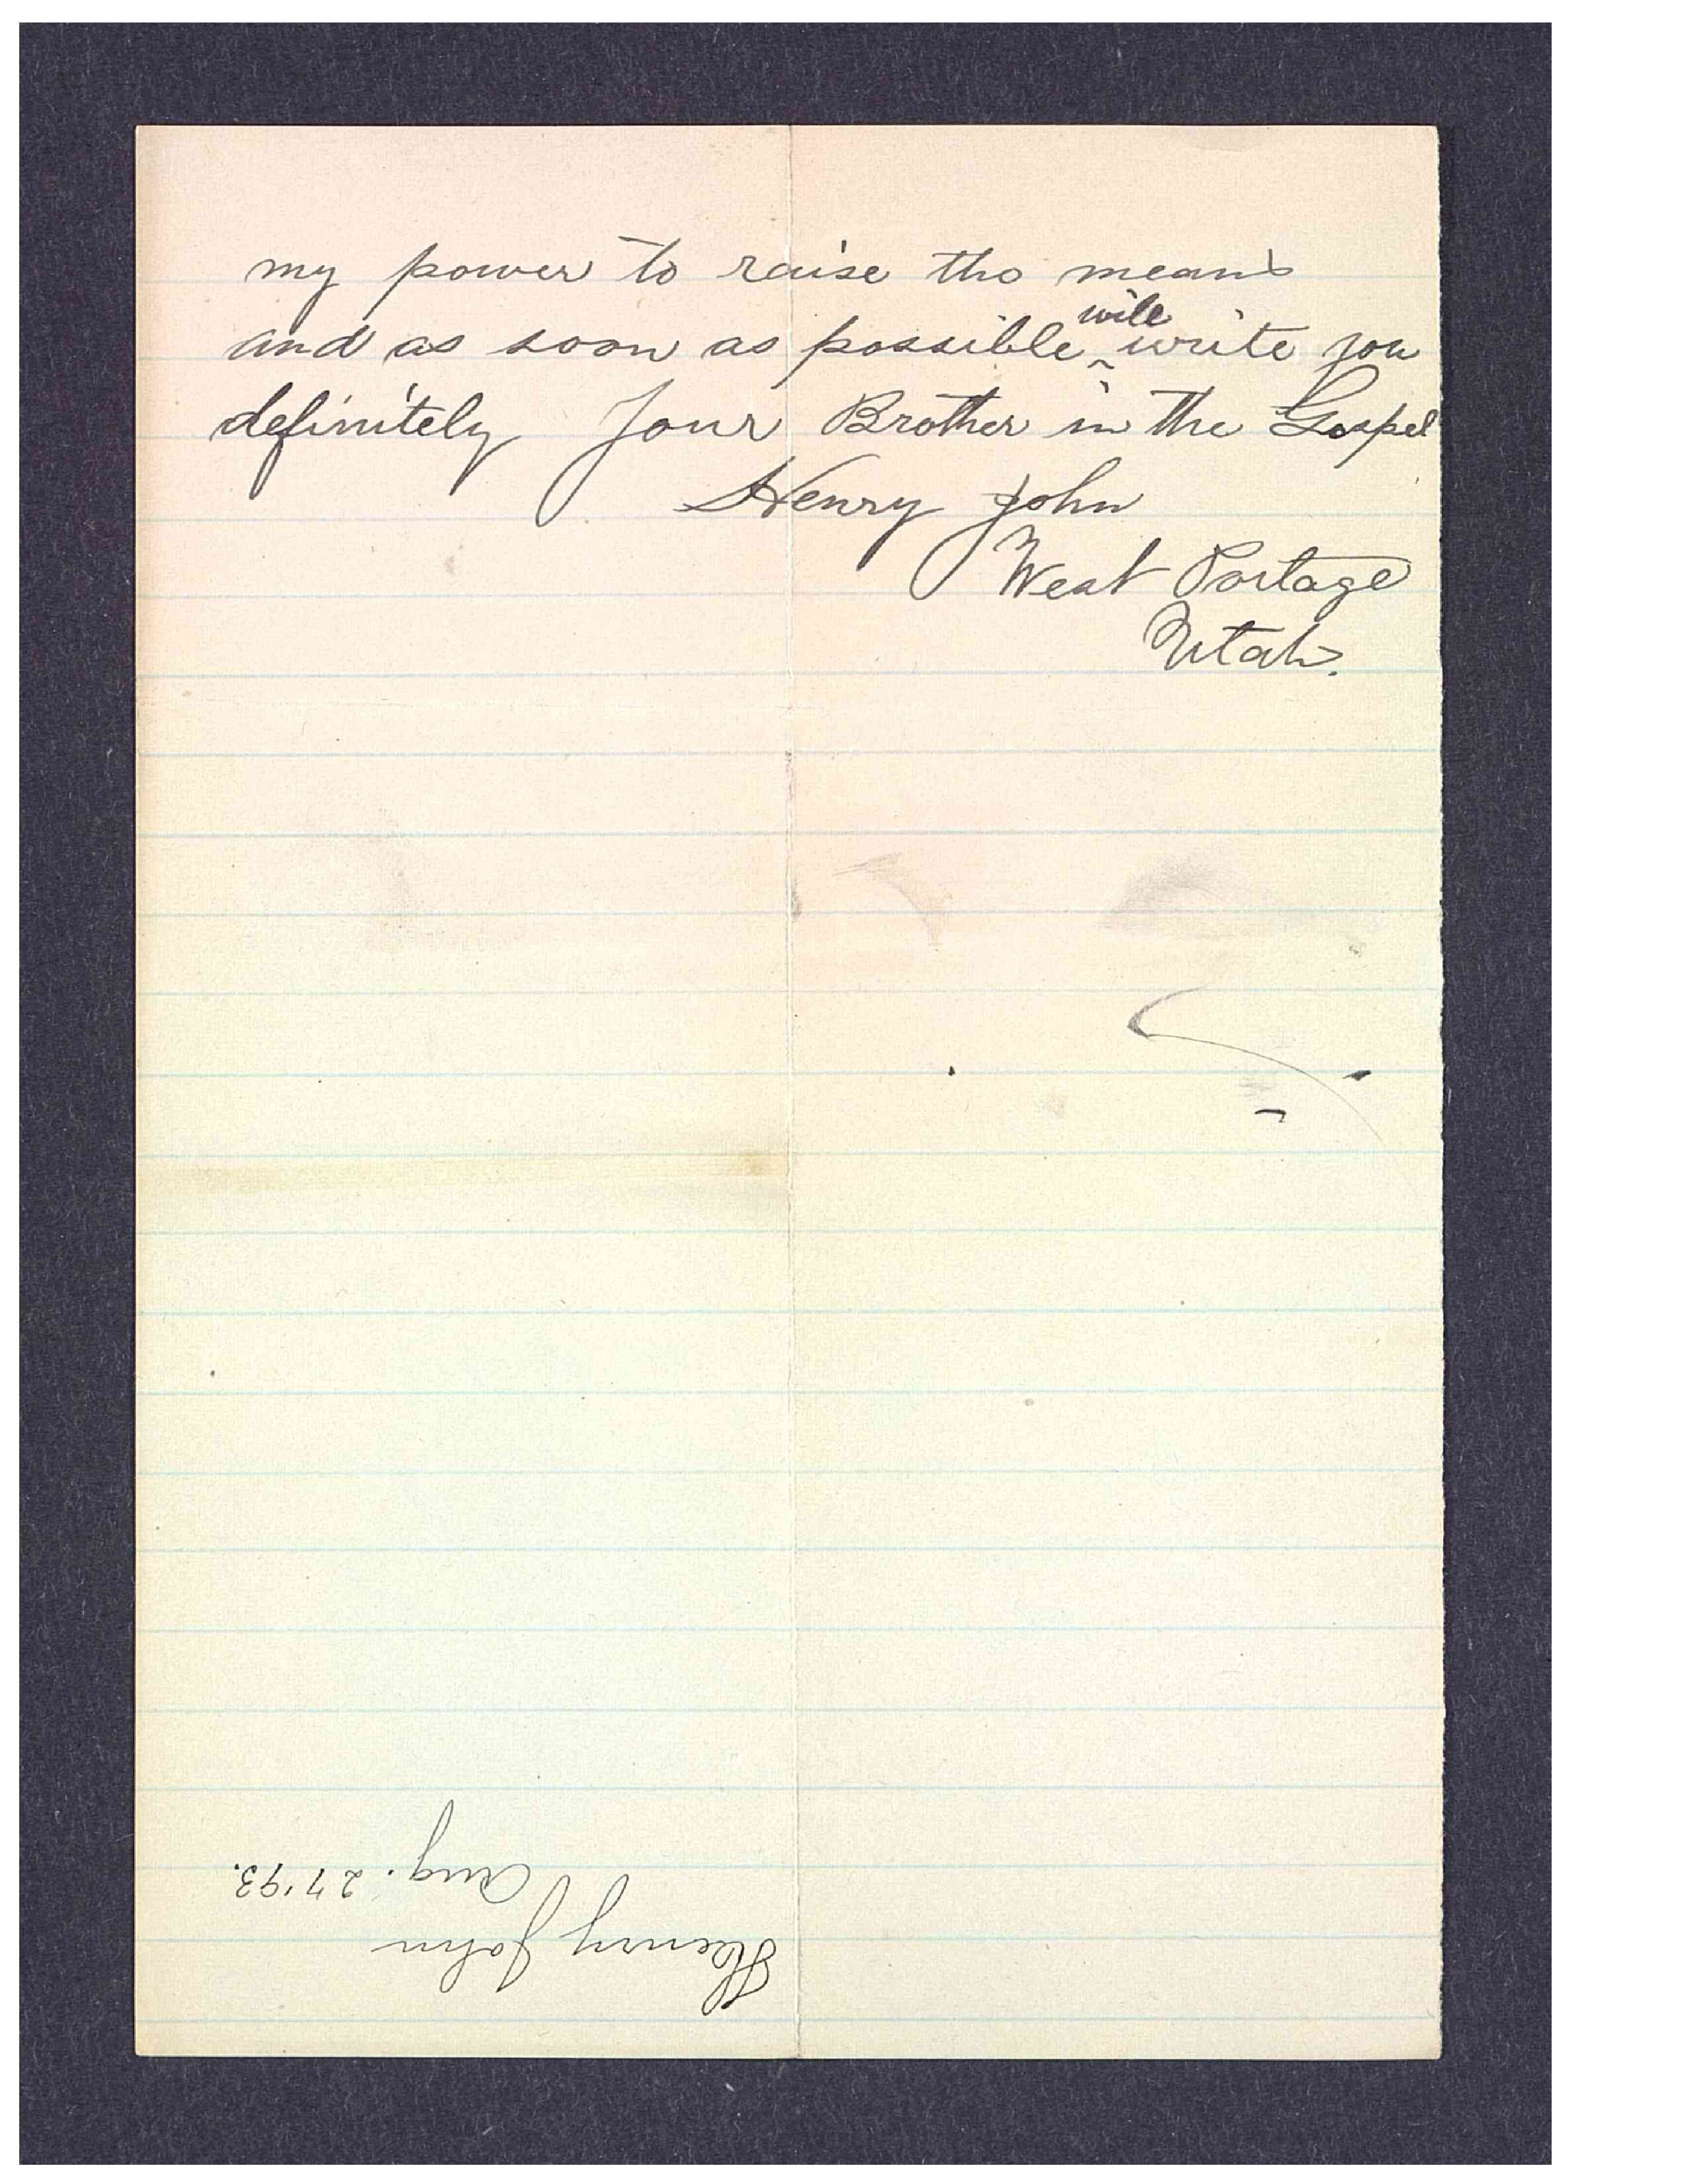 my power to raise the means
and as soon as possible ^will write you
definitely Your Brother in the Gospel
Henry John
West Portage
Utah.
Henry John
Aug. 27 '93.